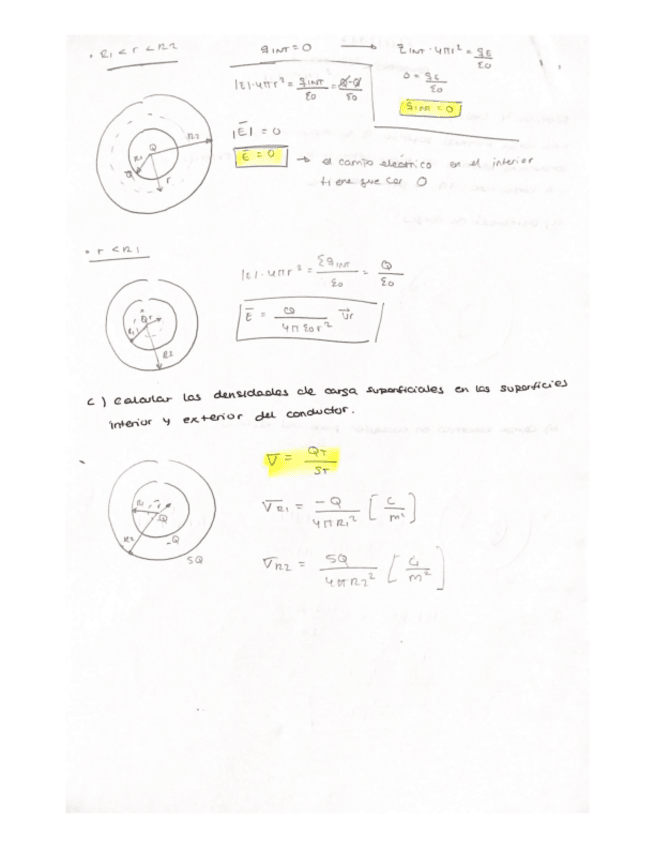 • R1 < r < R2
qINT = 0 ⟶ EINT · 4πr² = qE/ε0
|E| · 4πr² = qINT/ε0 = Q-Q/ε0
0 = qE/ε0
qINT = 0
|E| = 0
E = 0 → el campo eléctrico en el interior
tiene que ser 0
R2
R1
Q
r
• r < R1
|E| · 4πr² = ΣqINT/ε0 = Q/ε0
E = Q/4πε0r² ur
R1
R2
c) Calcular las densidades de carga superficiales en las superficies
interior y exterior del conductor.
σ = QT/ST
σR1 = -Q/4πR1² [C/m²]
σR2 = 5Q/4πR2² [C/m²]
R1
r
Q
R2
-Q
5Q